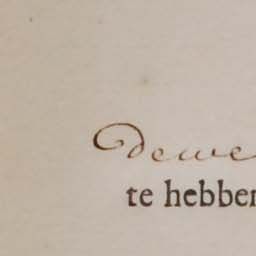 dewe
te hebben